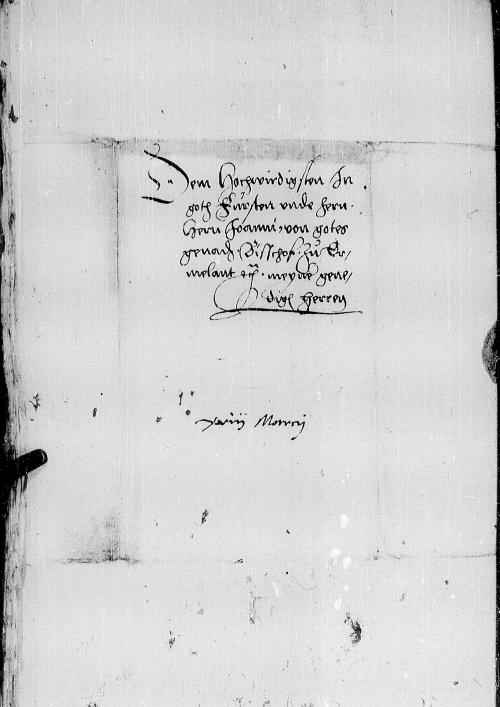 Dem Hochwirdigsten In
goth Fürsten unde hern
Hern Joanni, von gotes
genad Bisschof zu Er-
melant etc meyne gene-
digh herren
xxiii Marcii